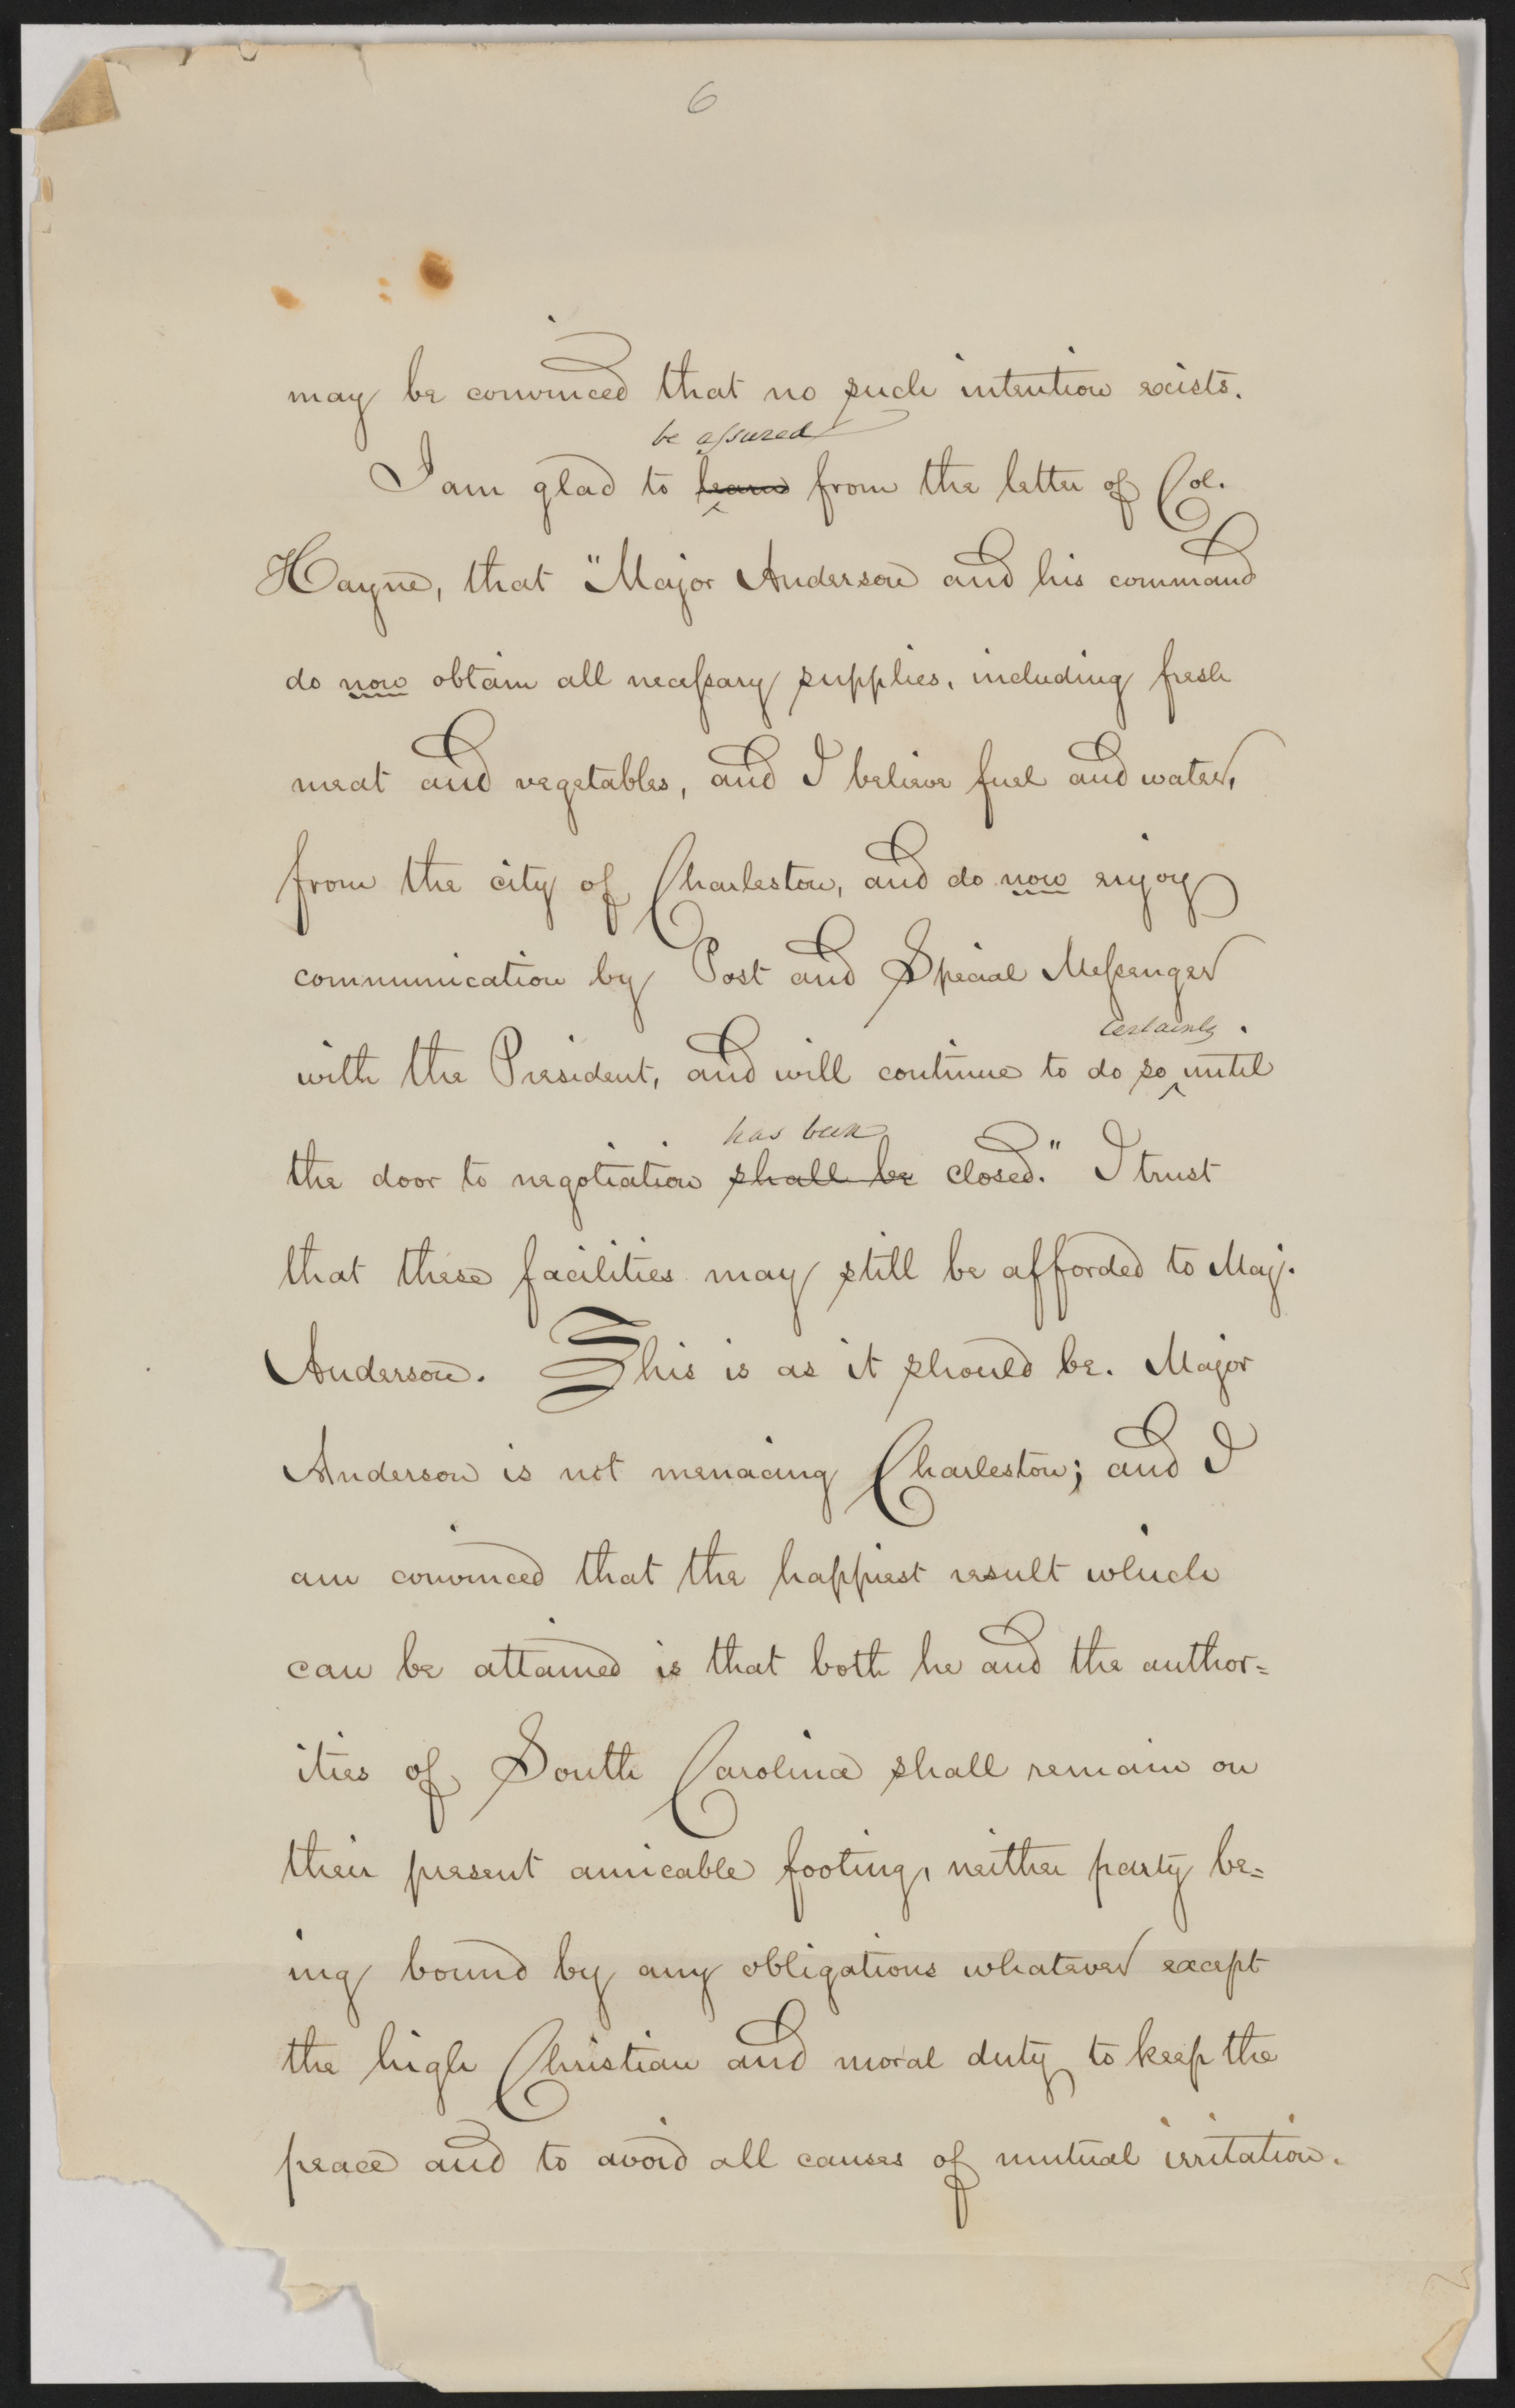 6
may be convinced that no such intention exists.
be assured
I am glad to learn from the letter of Col.
Hayne, that "Major Anderson and his command
do now obtain all necessary supplies, including fresh
meat and vegetables, and I believe fuel and water,
from the city of Charleston, and do now enjoy
communication by Post and Special Messenger
certainly
with the President, and will continue to do so until
has been
the door to negotiation shall be closed." I trust
that these facilities may still be afforded to Maj.
Anderson. This is as it should be. Major
Anderson is not menacing Charleston; and I
am convinced that the happiest result which
can be attained is that both he and the author=
ities of South Carolina shall remain on
their present amicable footing, neither party be=
ing bound by any obligations whatever except
the high Christian and moral duty to keep the
peace and to avoid all causes of mutual irritation.